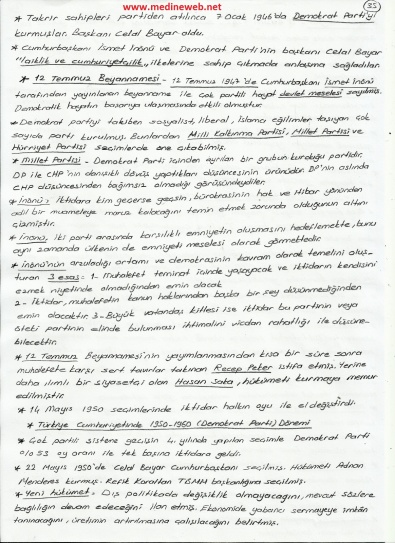 www.medineweb.net
35
* Takrir sahipleri partiden atılınca 7 Ocak 1946'da Demokrat Parti'yi
kurmuşlar. Başkanı Celal Bayar oldu.
* Cumhurbaşkanı İsmet İnönü ve Demokrat Parti'nin başkanı Celal Bayar
"laiklik ve cumhuriyetçilik" ilkelerine sahip çıkmada anlaşma sağladılar.
* 12 Temmuz Beyannamesi - 12 Temmuz 1947'de Cumhurbaşkanı İsmet İnönü
tarafından yayınlanan beyanname ile çok partili hayat devlet meselesi sayılmış.
Demokratik hayatın başarıya ulaşmasında etkili olmuştur.
* Demokrat partiyi takiben sosyalist, liberal, İslamcı eğilimler taşıyan çok
sayıda parti kurulmuş. Bunlardan Milli Kalkınma Partisi, Millet Partisi ve
Hürriyet Partisi seçimlerde öne çıkabilmiş.
* Millet Partisi - Demokrat Parti içinden ayrılan bir grubun kurduğu partidir.
DP ile CHP'nin danışıklı dövüş yaptıkları düşüncesinin ürünüdür. DP'nin aslında
CHP düşüncesinden bağımsız olmadığı görüşündeydiler.
* İnönü; İktidara kim geçerse geçsin, bürokrasinin hak ve itibar yönünden
adil bir muameleye maruz kalacağını temin etmek zorunda olduğunun altını
çizmiştir.
* İnönü, iki parti arasında karşılıklı emniyetin oluşmasını hedeflemekte, bunu
aynı zamanda ülkenin de emniyeti meselesi olarak görmektedir.
* İnönü'nün arzuladığı ortamı ve demokrasinin kavram olarak temelini oluş-
turan 3 esas: 1- Muhalefet teminat içinde yaşayacak ve iktidarın kendisini
ezmek niyetinde olmadığından emin olacak
2- İktidar, muhalefetin kanun haklarından başka bir şey düşünmediğinden
emin olacaktır 3- Büyük vatandaş kitlesi ise iktidar bu partinin veya
öteki partinin elinde bulunması ihtimalini vicdan rahatlığı ile düşüne-
bilecektir.
* 12 Temmuz Beyannamesi'nin yayımlanmasından kısa bir süre sonra
muhalefete karşı sert tavırlar takınan Recep Peker istifa etmiş. Yerine
daha ılımlı bir siyasetçi olan Hasan Saka, hükümeti kurmaya memur
edilmiştir.
* 14 Mayıs 1950 seçimlerinde iktidar halkın oyu ile el değiştirdi.
* Türkiye Cumhuriyetinde 1950-1960 (Demokrat Parti) Dönemi
* Çok partili sisteme geçişin 4. yılında yapılan seçimle Demokrat Parti
%53 oy oranı ile tek başına iktidara geldi.
* 22 Mayıs 1950'de Celal Bayar Cumhurbaşkanı seçilmiş. Hükümeti Adnan
Menderes kurmuş. Refik Koraltan TBMM başkanlığına seçilmiş.
* Yeni hükümet - Dış politikada değişiklik olmayacağını, mevcut sözlere
bağlılığın devam edeceğini ilan etmiş. Ekonomide yabancı sermayeye imkân
tanınacağını, üretimin artırılmasına çalışılacağını belirtmiş.